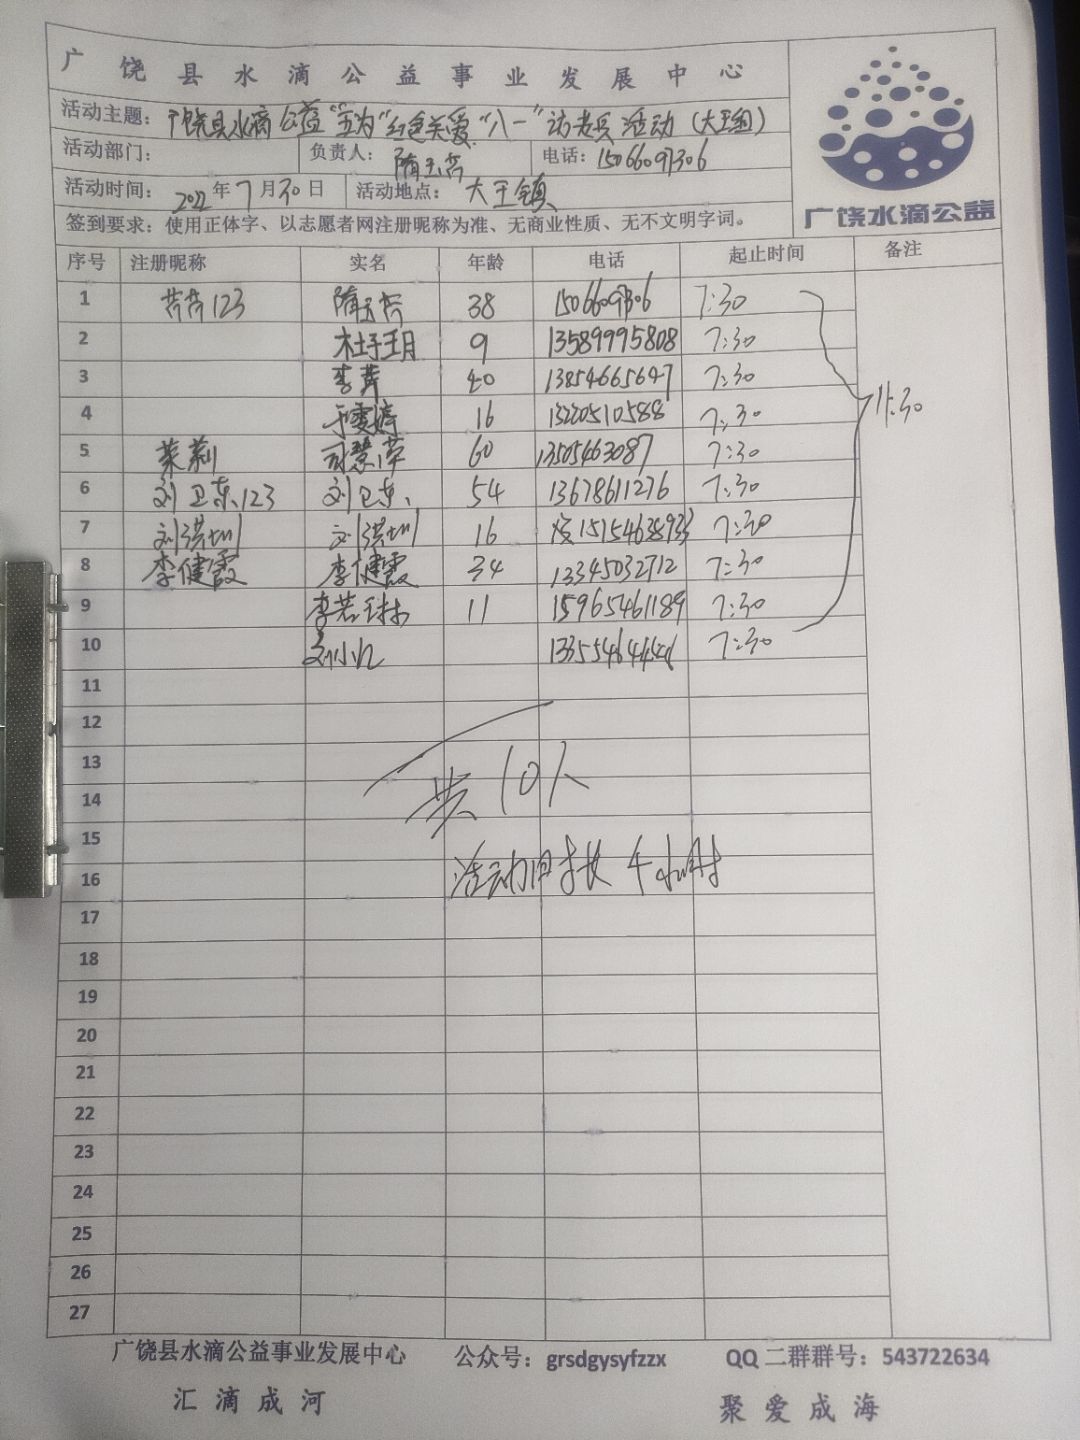 广饶县水滴公益事业发展中心
活动主题：广饶县水滴公益“五为”红色关爱“八一”访老兵活动（大王组）
活动部门： 负责人：隋玉芹 电话：15066097306
活动时间：2022年7月30日 活动地点：大王镇
广饶水滴公益
签到要求：使用正体字、以志愿者网注册昵称为准、无商业性质、无不文明字词。
序号 注册昵称 实名 年龄 电话 起止时间 备注
1 芹芹123 隋玉芹 38 15066097306 7:30
2 杜于玥 9 13589995808 7:30
3 李 40 13854665647 7:30
4 于雯婷 16 13220510588 7:30
11:30
5 茉莉 司慧萍 60 13505463087 7:30
6 刘卫东123 刘卫东 54 13678611276 7:30
7 刘洪圳 刘洪圳 16 15154638933 7:30
8 李健霞 李健霞 34 13345032712 7:30
9 李若琳 11 15965461189 7:30
10 刘小 7:30
11
12
13
共10人
14
15
活动时长 4小时
16
17
18
19
20
21
22
23
24
25
26
27
广饶县水滴公益事业发展中心 公众号：grsdgysyfzzx QQ二群群号：543722634
汇滴成河 聚爱成海